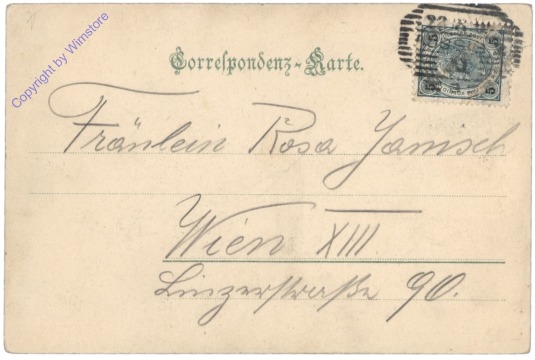 Copyright by Wimstore
Correspondenz-Karte.
Fräulein Rosa Janisch
Wien XIII
Linzerstraße 90.